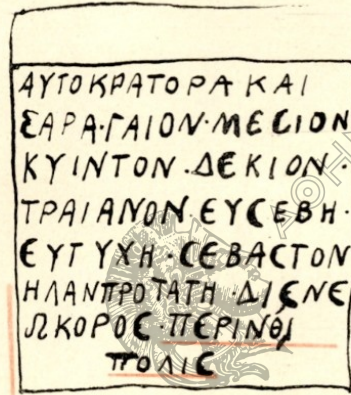 ΑΥΤΟΚΡΑΤΟΡΑ ΚΑΙ
ΣΑΡΑ·ΓΑΙΟΝ·ΜΕϹΙΟΝ
ΚΥΙΝΤΟΝ·ΔΕΚΙΟΝ·
ΤΡΑΙΑΝΟΝ·ΕΥϹΕΒΗ·
ΕΥΤΥΧΗ·ϹΕΒΑϹΤΟΝ
ΗΛΑΝΠΡΟΤΑΤΗ·ΔΙϹΝΕ
ΩΚΟΡΟϹ·ΠΕΡΙΝΘΙ
ΠΟΛΙϹ